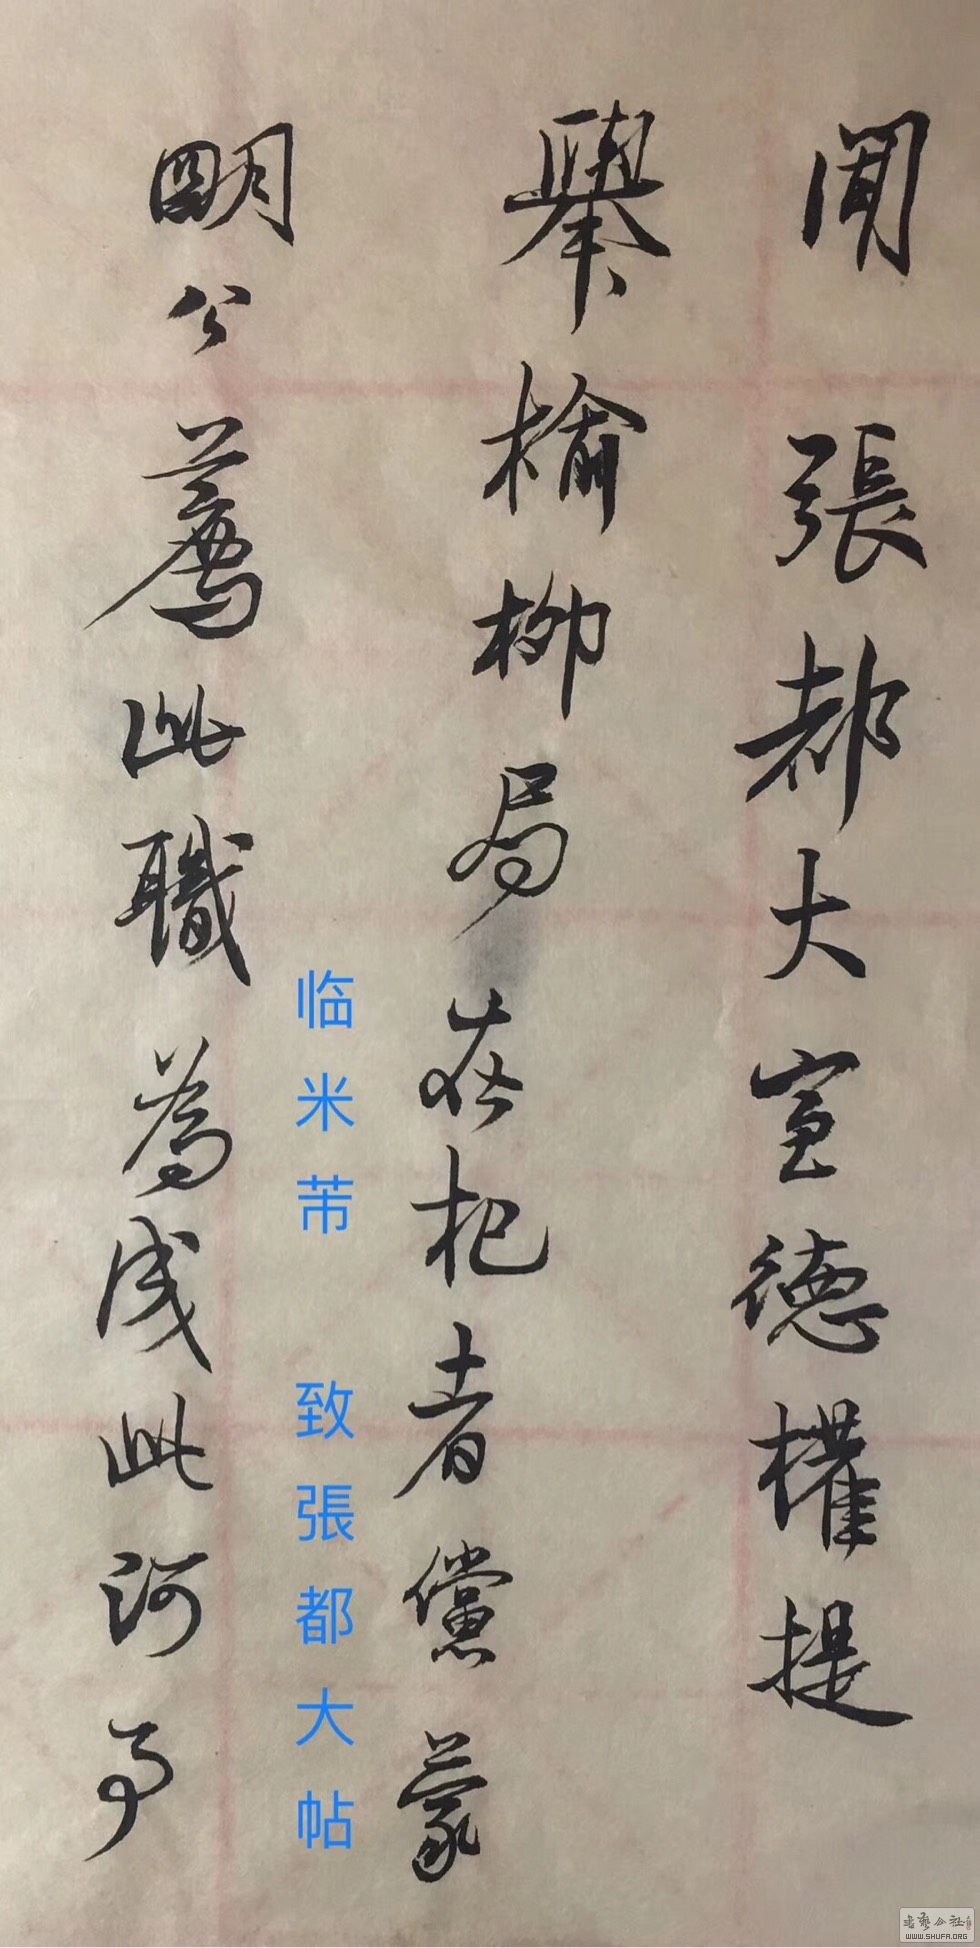 聞張都大宣德權提
舉榆柳局在杞者儻蒙
明公薦此職為成此河事
临米芾 致張都大帖
書藝公社
WWW.SHUFA.ORG